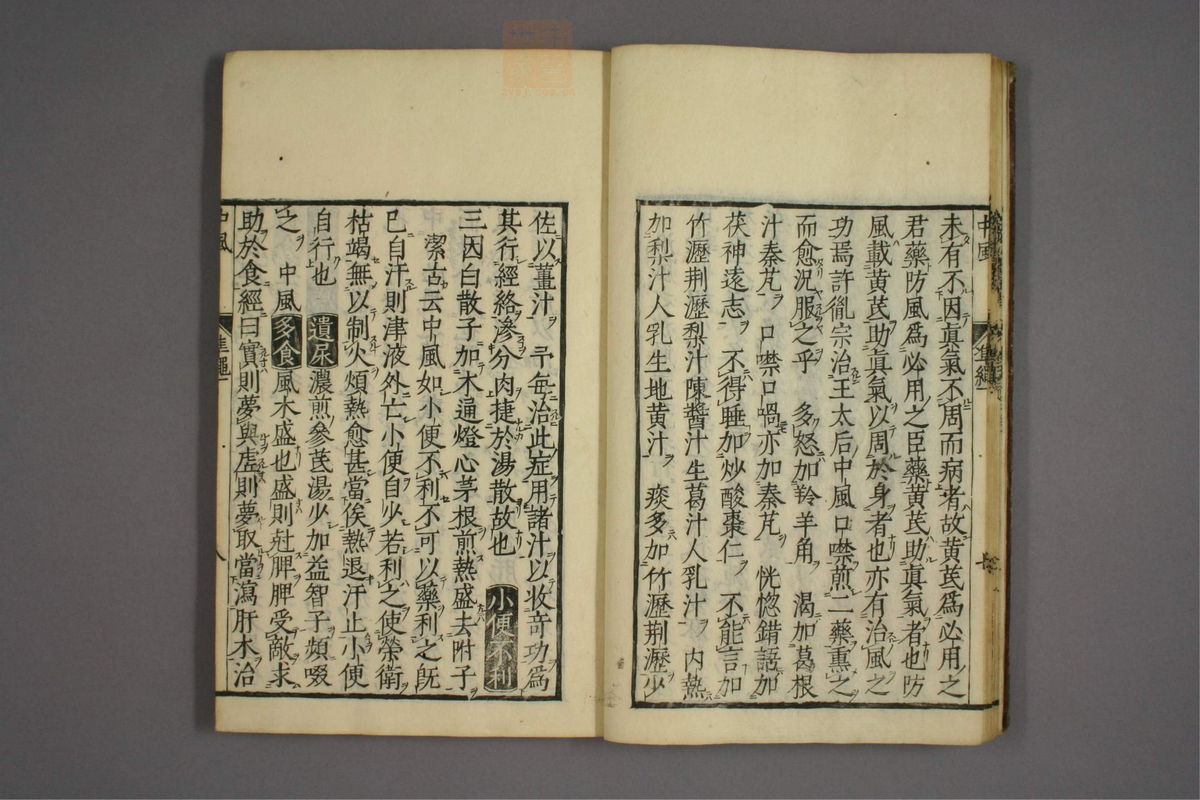 中風
未有不因眞氣不周而病者故黄芪爲必用之
君藥防風爲必用之臣藥黄芪助眞氣者也防
風載黄芪助眞氣以周於身者也亦有治風之
功焉許胤宗治王太后中風口噤煎二藥熏之
而愈況服之乎　多怒加羚羊角　渴加葛根
汁秦芃　口噤口喎亦加秦芃　恍惚錯語加
茯神遠志　不得睡加炒酸棗仁　不能言加
竹瀝荆瀝梨汁陳醬汁生葛汁人乳汁　内熱
加梨汁人乳生地黄汁　痰多加竹瀝荆瀝少
佐以薑汁　予每治此症用諸汁以收奇功爲
其行經絡滲分肉捷於湯散故也　小便不利
三因白散子加木通燈心茅根煎熱盛去附子
潔古云中風如小便不利不可以藥利之旣
已自汗則津液外亡小便自少若利之使榮衛
枯竭無以制火煩熱愈甚當俟熱退汗止小便
自行也　遺尿濃煎參芪湯少加益智子頻啜
之　中風多食風木盛也盛則尅脾脾受敵求
助於食經曰實則夢與虚則夢取當瀉肝木治
中風
準繩
八